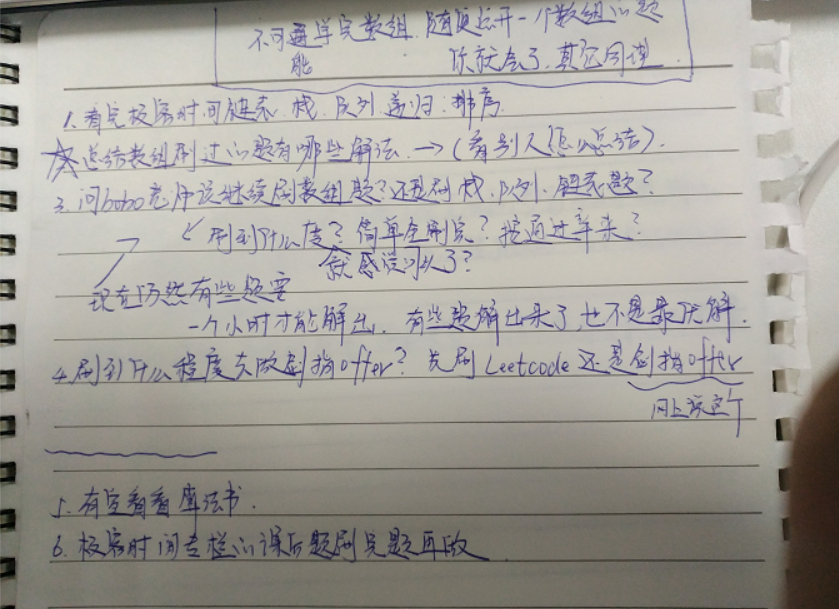 不可能学完数组,随便点开一个数组的题
你就会了,其它同理
1. 看完极客时间链表.栈.队列.递归.排序.
☆总结数组刷过的题有哪些解法.→(看别人怎么总结).
3. 问bobo老师该继续刷数组题?还是刷栈.队列.链表题?
刷到什么度?简单全刷完?按通过率来?
就感觉可以了?
现在仍然有些题要
一个小时才能解出.有些题解出来了,也不是最优解.
4. 刷到什么程度去做剑指offer?先刷Leetcode还是剑指offer
网上说这个
5. 有空看看算法书.
6. 极客时间专栏的课后题刷完题再做